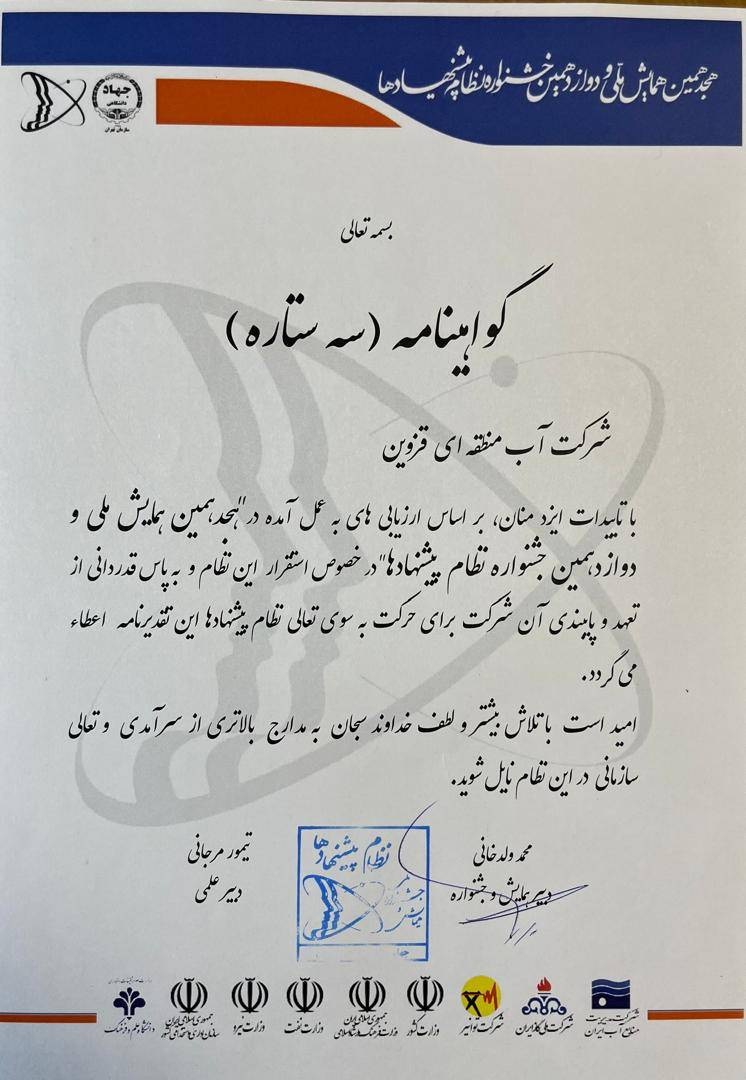 هجدهمین همایش ملی و دوازدهمین جشنواره نظام پیشنهادها
جهاد
دانشگاهی
سازمان تهران
بسمه تعالی
گواهینامه (سه ستاره)
شرکت آب منطقه ای قزوین
با تاییدات ایزد منان، بر اساس ارزیابی های به عمل آمده در "هجدهمین همایش ملی و
دوازدهمین جشنواره نظام پیشنهادها" در خصوص استقرار این نظام و به پاس قدردانی از
تعهد و پایبندی آن شرکت برای حرکت به سوی تعالی نظام پیشنهادها این تقدیرنامه اعطاء
می گردد.
امید است با تلاش بیشتر و لطف خداوند سبحان به مدارج بالاتری از سرآمدی و تعالی
سازمانی در این نظام نایل شوید.
محمد ولدخانی
دبیر همایش و جشنواره
تیمور مرجانی
دبیر علمی
نظام پیشنهادها
جشنواره
همایش
شرکت مدیریت
منابع آب ایران
شرکت ملی گاز ایران
شرکت توانیر
وزارت کشور
جمهوری اسلامی ایران
وزارت فرهنگ و ارشاد اسلامی
وزارت نفت
وزارت نیرو
جمهوری اسلامی ایران
سازمان اداری و استخدامی کشور
دانشگاه علم و فرهنگ